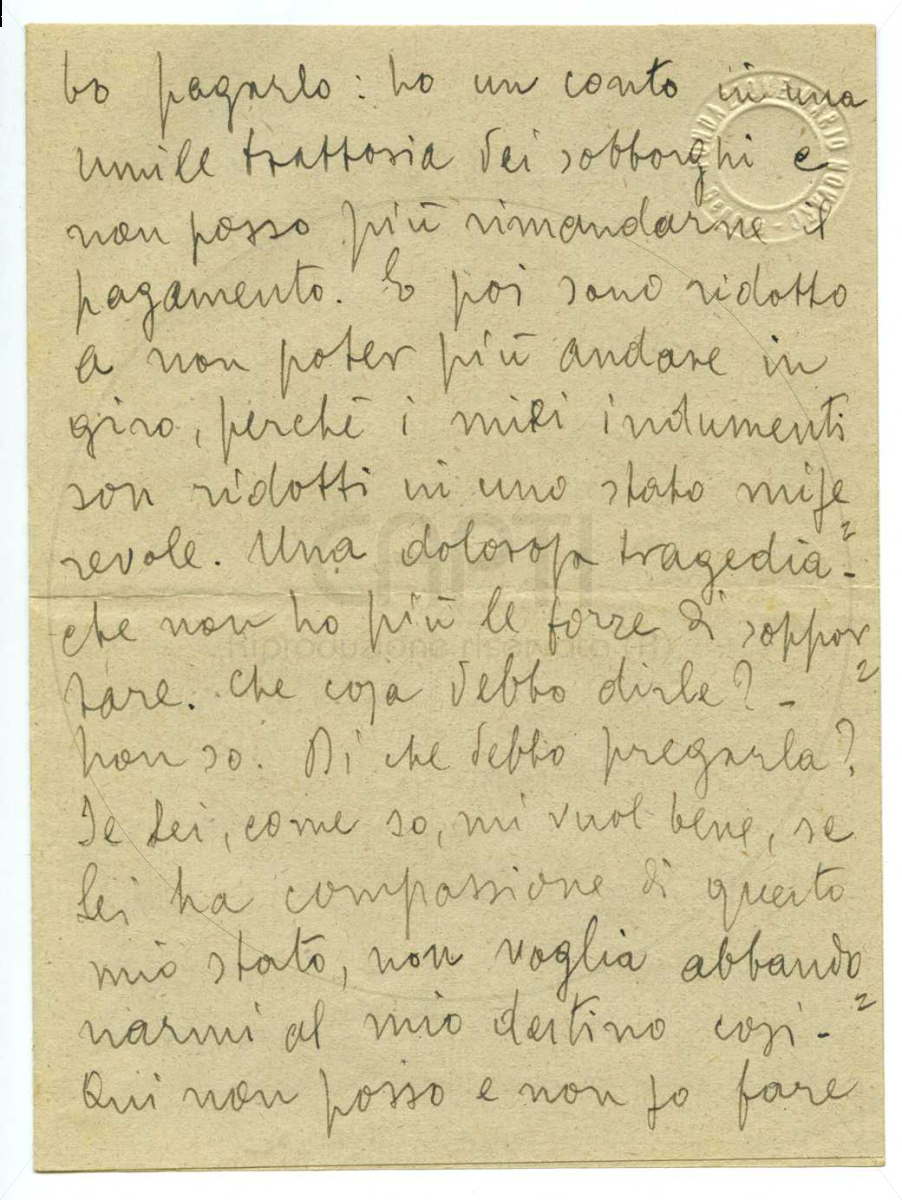 bo pagarlo: ho un conto in una
umile trattoria dei sobborghi e
non posso più rimandarne il
pagamento. E poi sono ridotto
a non poter più andare in
giro, perchè i miei indumenti
son ridotti in uno stato mise
revole. Una dolorosa tragedia -
che non ho più le forze di soppor
tare. Che cosa debbo dirle? -
Non so. Di che debbo pregarla?
Se Lei, come so, mi vuol bene, se
Lei ha compassione di questo
mio stato, non voglia abbando
narmi al mio destino così -
Qui non posso e non so fare
CAPTI